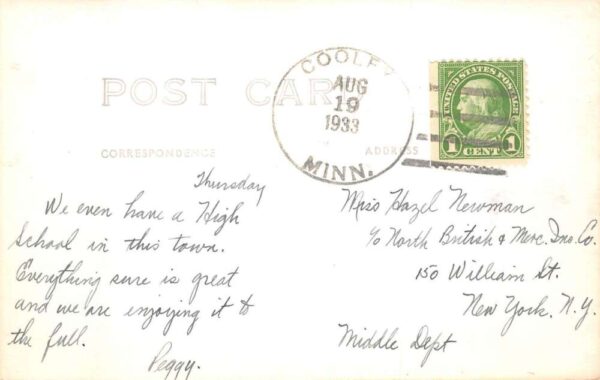 POST CARD
CORRESPONDENCE
ADDRESS
COOLEY
AUG
19
1933
MINN.
UNITED STATES POSTAGE
FRANKLIN
1 CENT 1
Thursday
We even have a High
School in this town.
Everything sure is great
and we are enjoying it to
the full.
Peggy.
Miss Hazel Newman
c/o North British & Merc. Ins. Co.
150 William St.
New York, N.Y.
Middle Dept